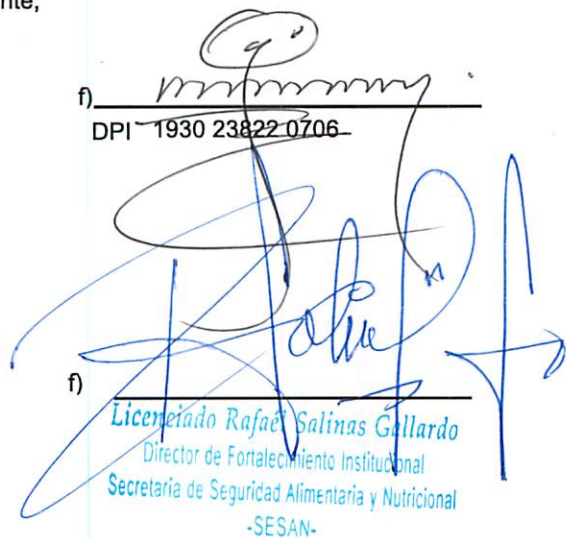 nte,
f)
DPI 1930 23822 0706
f)
Licenciado Rafael Salinas Gallardo
Director de Fortalecimiento Institucional
Secretaria de Seguridad Alimentaria y Nutricional
-SESAN-